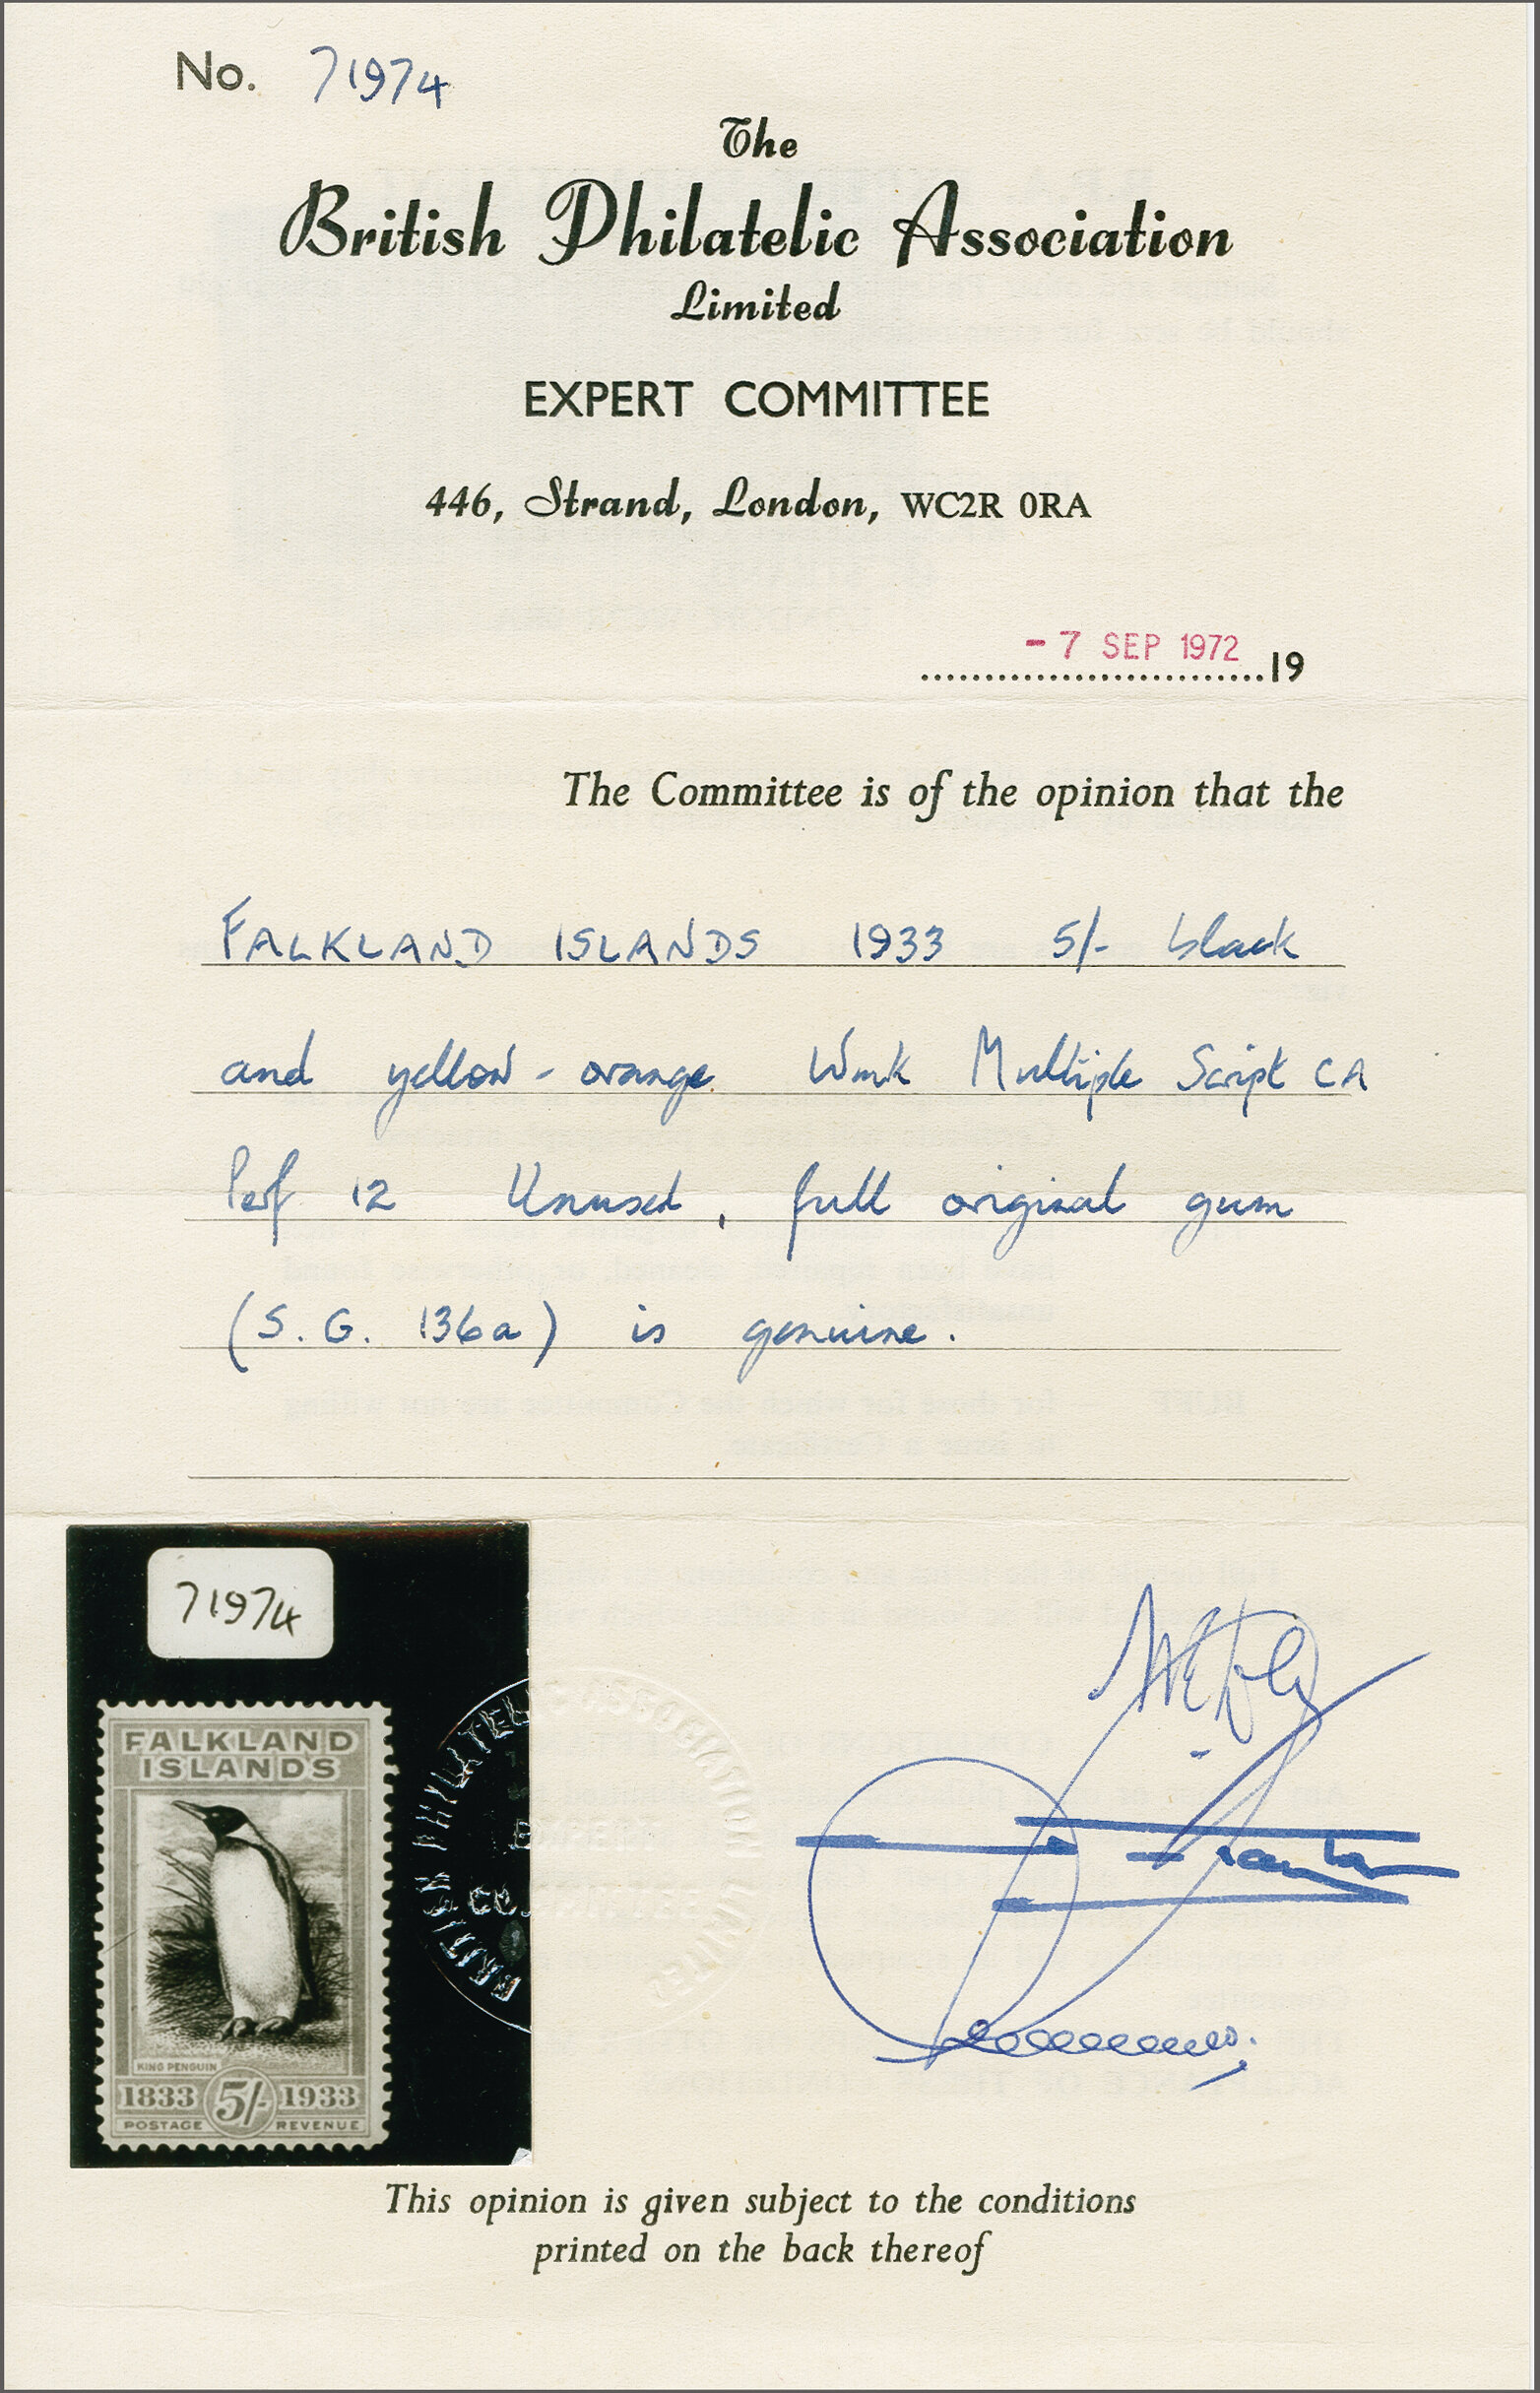 No. 71974
The
British Philatelic Association
Limited
EXPERT COMMITTEE
446, Strand, London, WC2R 0RA
- 7 SEP 1972
..........................19
The Committee is of the opinion that the
FALKLAND ISLANDS 1933 5/- black
and yellow-orange Wmk Multiple Script CA
Perf 12 Unused, full original gum
(S. G. 136a) is genuine.
71974
FALKLAND
ISLANDS
KING PENGUIN
1833 5/- 1933
POSTAGE REVENUE
BRITISH PHILATELIC ASSOCIATION LIMITED
This opinion is given subject to the conditions
printed on the back thereof